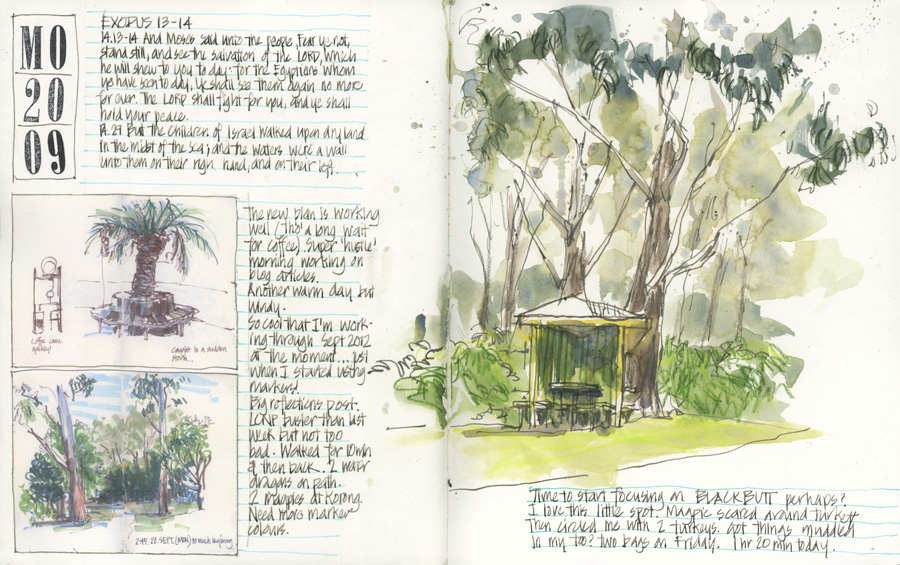 MO
20
09
EXODUS 13-14
14.13-14 And Moses said unto the people, Fear ye not,
stand still, and see the salvation of the LORD, which
he will shew to you to day: for the Egyptians whom
ye have seen to day, ye shall see them again no more
for ever. The LORD shall fight for you, and ye shall
hold your peace.
14.29 But the children of Israel walked upon dry land
in the midst of the sea; and the waters were a wall
unto them on their right hand, and on their left.
coffee came
quickly!
caught in a sudden
storm...
2:45, 20. SEPT. (MON)
The new plan is working
well (tho' a long wait
for coffee). Super 'hustle'
morning working on
blog articles.
Another warm day but
windy.
So cool that I'm work-
ing through Sept 2012
at the moment... just
when I started using
markers!
Big reflections post.
LCNP busier than last
week but not too
bad. Walked for 10min
& then back. 2 water
dragons on path.
2 magpies at Korong.
Need more marker
colours.
Time to start focusing on BLACKBUTT perhaps?
I love this little spot. Magpie scared around turkey
then circled me with 2 turkeys. Got things muddled
in my too? two bags on Friday. 1hr 20 min today.